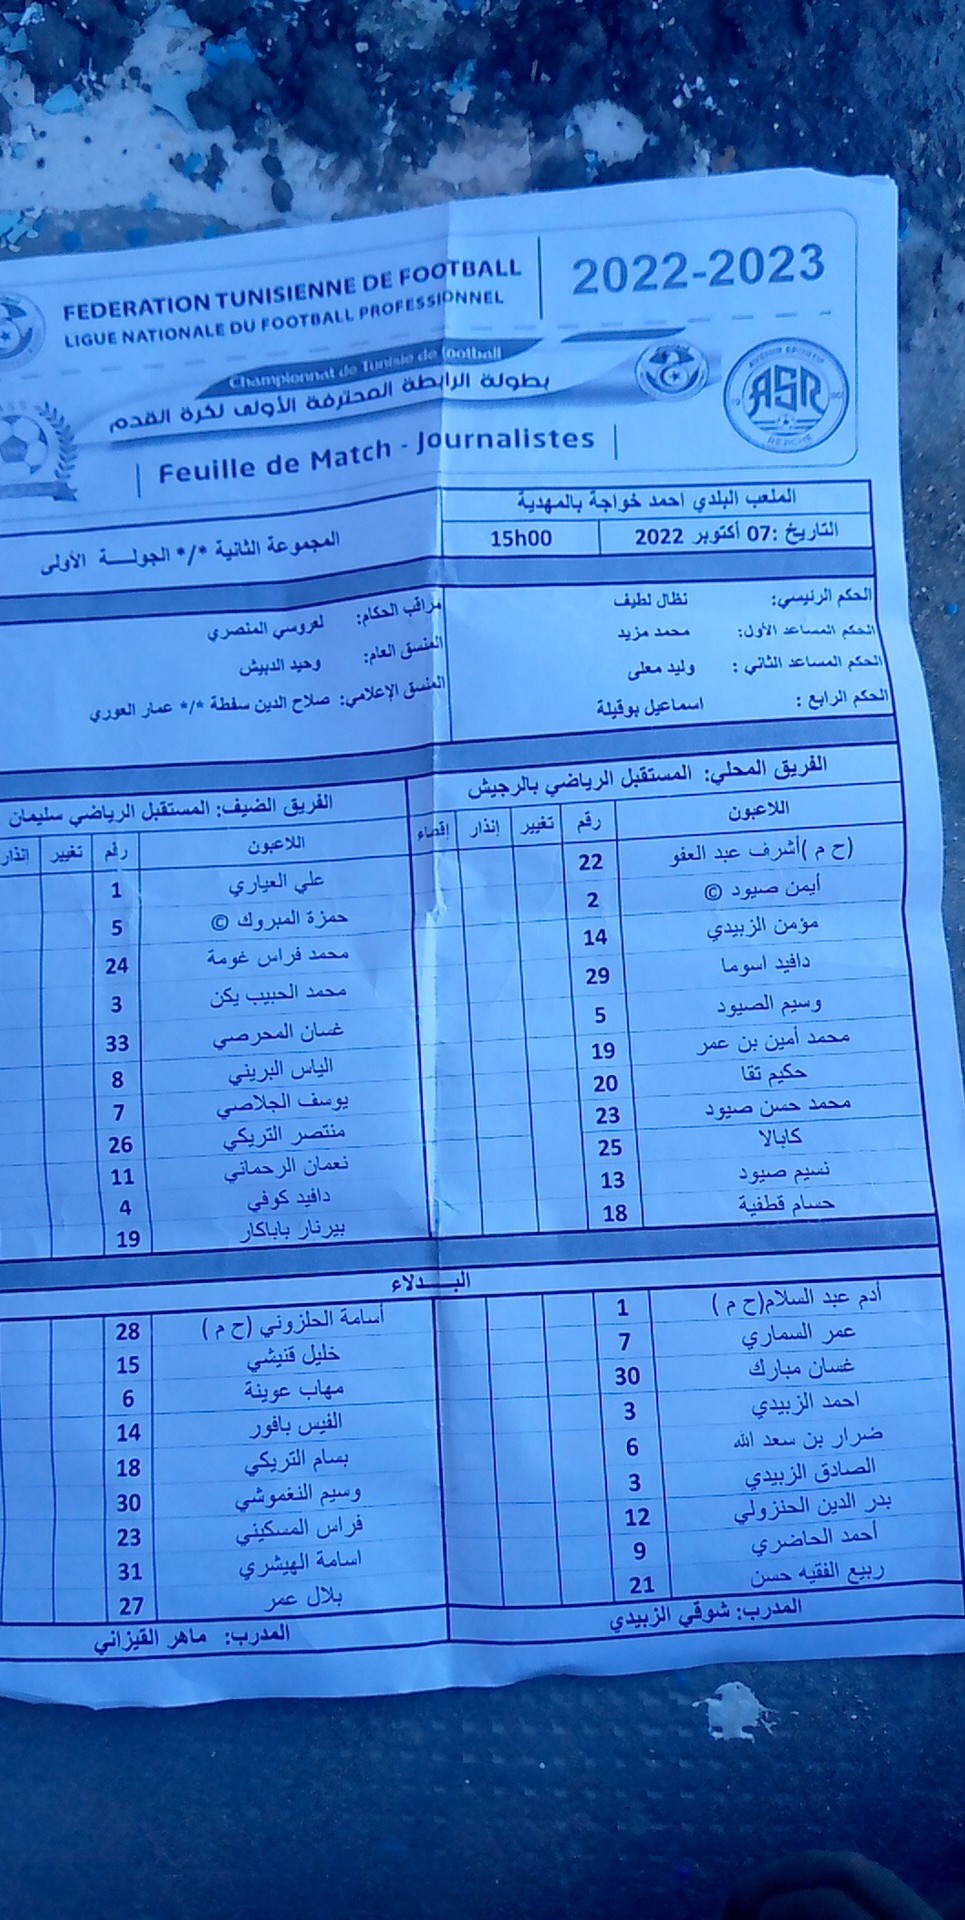 FEDERATION TUNISIENNE DE FOOTBALL
LIGUE NATIONALE DU FOOTBALL PROFESSIONNEL
2022-2023
Championnat de Tunisie de football
بطولة الرابطة المحترفة الأولى لكرة القدم
ASR
Feuille de Match - Journalistes
الملعب البلدي احمد خواجة بالمهدية
التاريخ :07 أكتوبر 2022 15h00
المجموعة الثانية */* الجولـــة الأولى
الحكم الرئيسي: نظال لطيف
الحكم المساعد الأول: محمد مزيد
الحكم المساعد الثاني : وليد معلى
الحكم الرابع : اسماعيل بوقيلة
مراقب الحكام: لعروسي المنصري
المنسق العام: وحيد الدبيش
المنسق الإعلامي: صلاح الدين سفطة */* عمار العوري
الفريق المحلي: المستقبل الرياضي بالرجيش
اللاعبون رقم تغيير إنذار إقصاء
(ح م )أشرف عبد العفو 22
أيمن صيود © 2
مؤمن الزبيدي 14
دافيد اسوما 29
وسيم الصيود 5
محمد أمين بن عمر 19
حكيم تقا 20
محمد حسن صيود 23
كابالا 25
نسيم صيود 13
حسام قطفية 18
الفريق الضيف: المستقبل الرياضي سليمان
اللاعبون رقم تغيير إنذار
علي العياري 1
حمزة المبروك © 5
محمد فراس غومة 24
محمد الحبيب يكن 3
غسان المحرصي 33
الياس البريني 8
يوسف الجلاصي 7
منتصر التريكي 26
نعمان الرحماني 11
دافيد كوفي 4
بيرنار باباكار 19
البــــدلاء
أدم عبد السلام(ح م ) 1
عمر السماري 7
غسان مبارك 30
احمد الزبيدي 3
ضرار بن سعد الله 6
الصادق الزبيدي 3
بدر الدين الحنزولي 12
أحمد الحاضري 9
ربيع الفقيه حسن 21
المدرب: شوقي الزبيدي
أسامة الحلزوني (ح م ) 28
خليل قنيشي 15
مهاب عوينة 6
الفيس بافور 14
بسام التريكي 18
وسيم النغموشي 30
فراس المسكيني 23
اسامة الهيشري 31
بلال عمر 27
المدرب: ماهر القيزاني